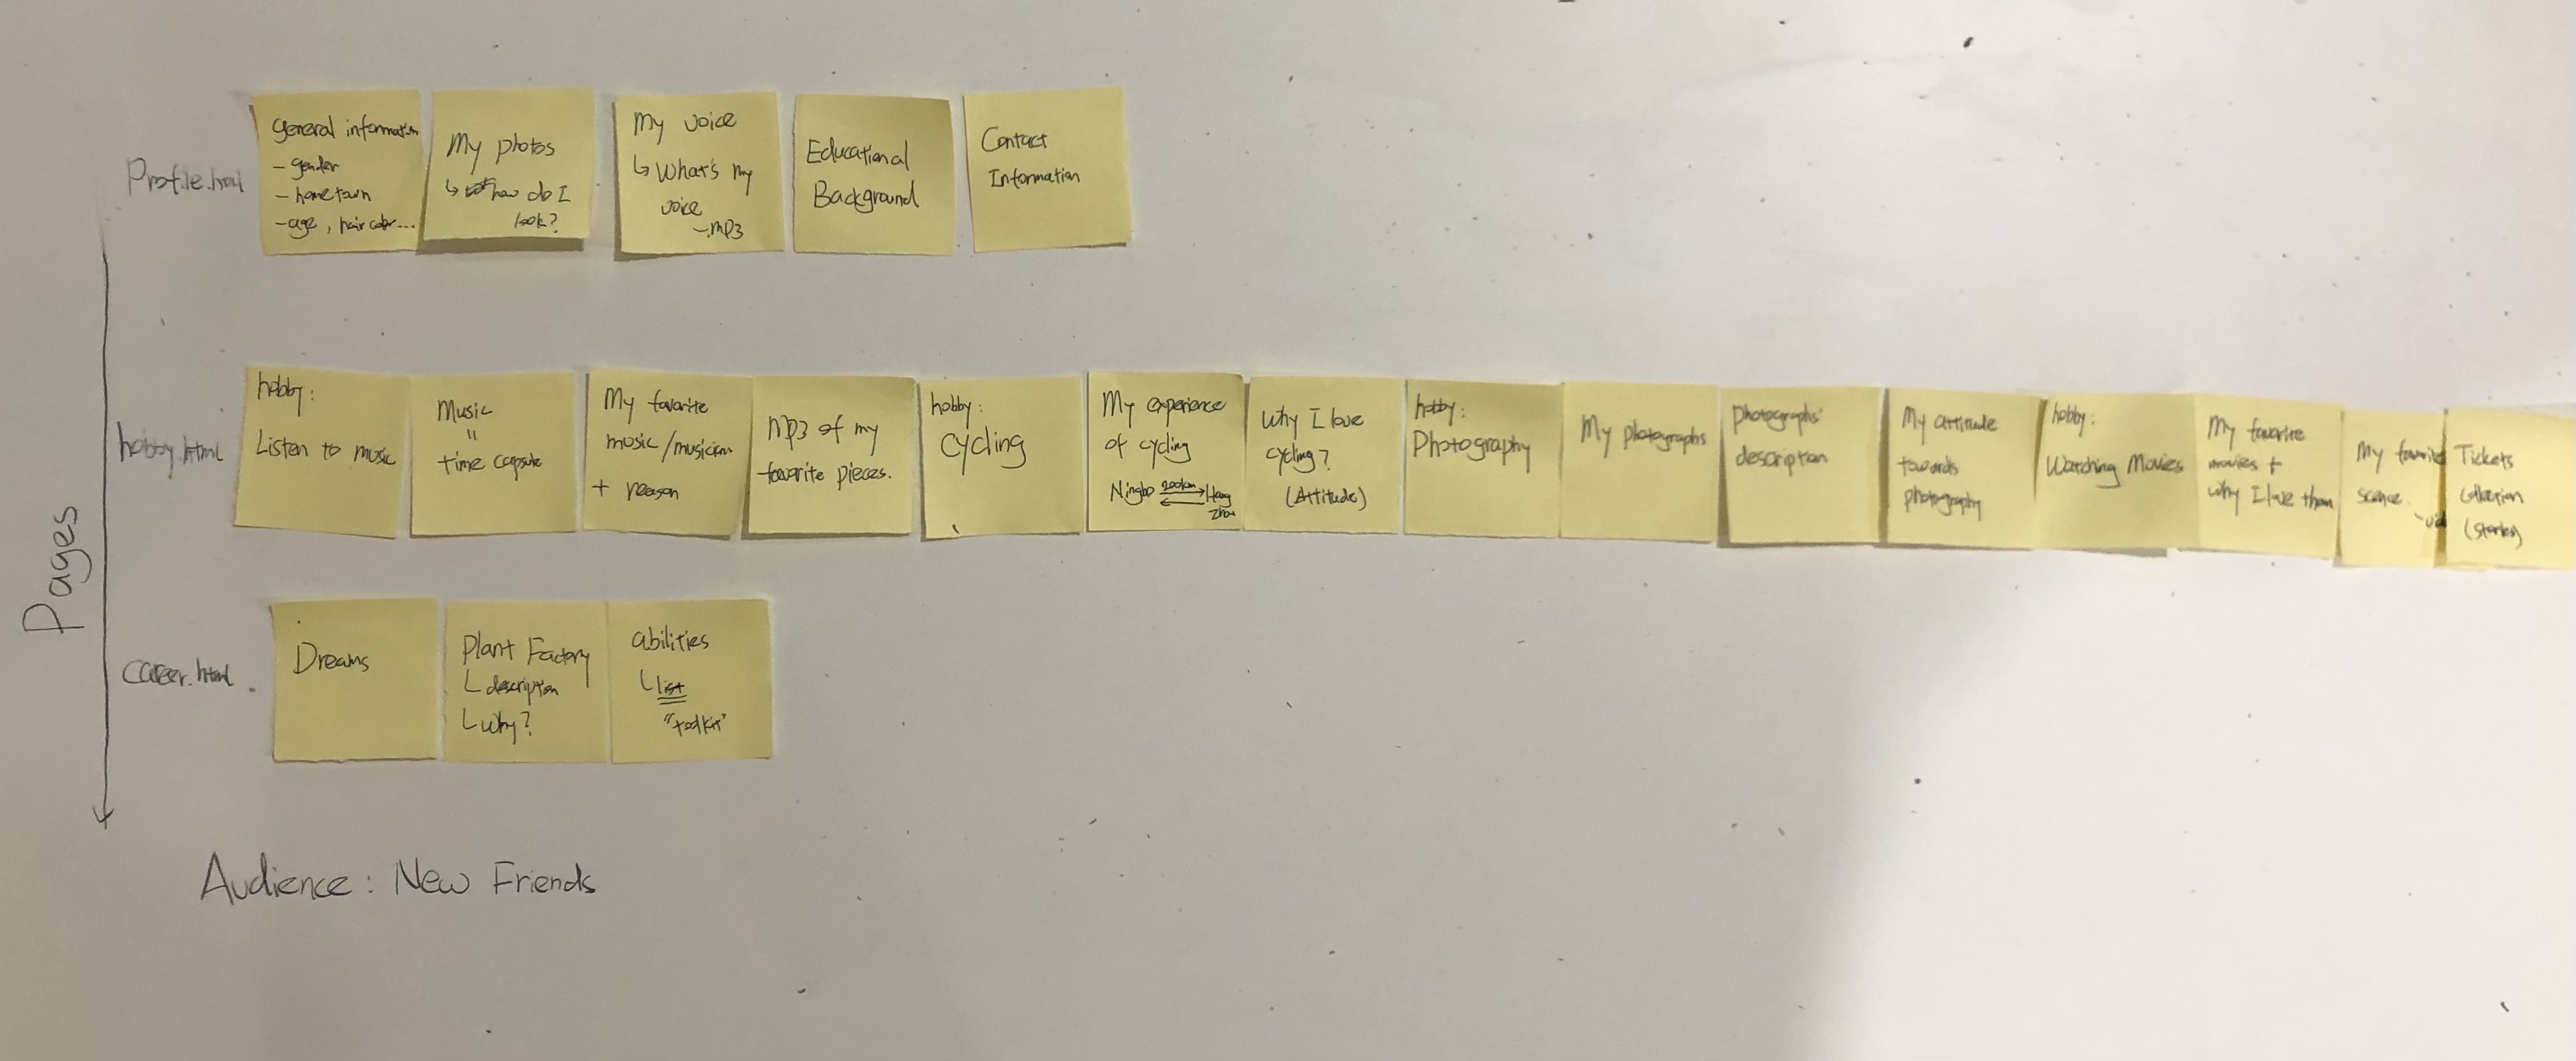 Pages
Profile.html
general information
- gender
- hometown
- age, hair color...
My photos
↳ how do I
look?
My voice
↳ What's my
voice
-.mp3
Educational
Background
Contact
Information
hobby.html
hobby:
Listen to music
Music
"
time capsule
My favorite
music/musician
+ reason
mp3 of my
favorite pieces.
hobby:
cycling
My experience
of cycling
Ningbo 200km Hang
zhou
Why I love
cycling?
(Attitude)
hobby:
Photography
My photographs
photographs'
description
My attitude
towards
photography
hobby:
Watching Movies
My favorite
movies +
why I love them
My favorite
Tickets
collection
(stories)
career.html
Dreams
Plant Factory
└ description
└ why?
abilities
└ list
"toolkit"
Audience: New Friends